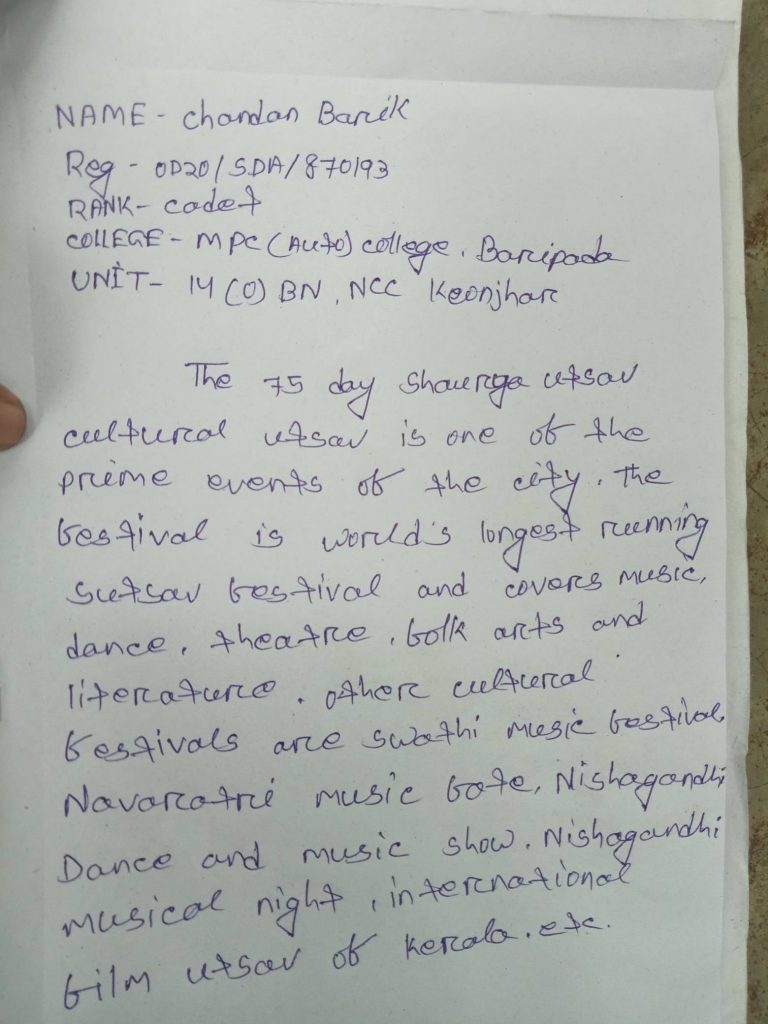 NAME - Chandan Barik
Reg - OD20/SDA/870193
RANK - cadet
COLLEGE - MPC (Auto) college, Baripada
UNIT - 14 (O) BN, NCC Keonjhar
The 75 day Shaurya utsav
cultural utsav is one of the
prime events of the city. The
festival is world's longest running
sutsav festival and covers music,
dance, theatre, folk arts and
literature. other cultural
festivals are swathi music festival,
Navaratri music fate, Nishagandhi
Dance and music show, Nishagandhi
musical night, international
film utsav of kerala. etc.